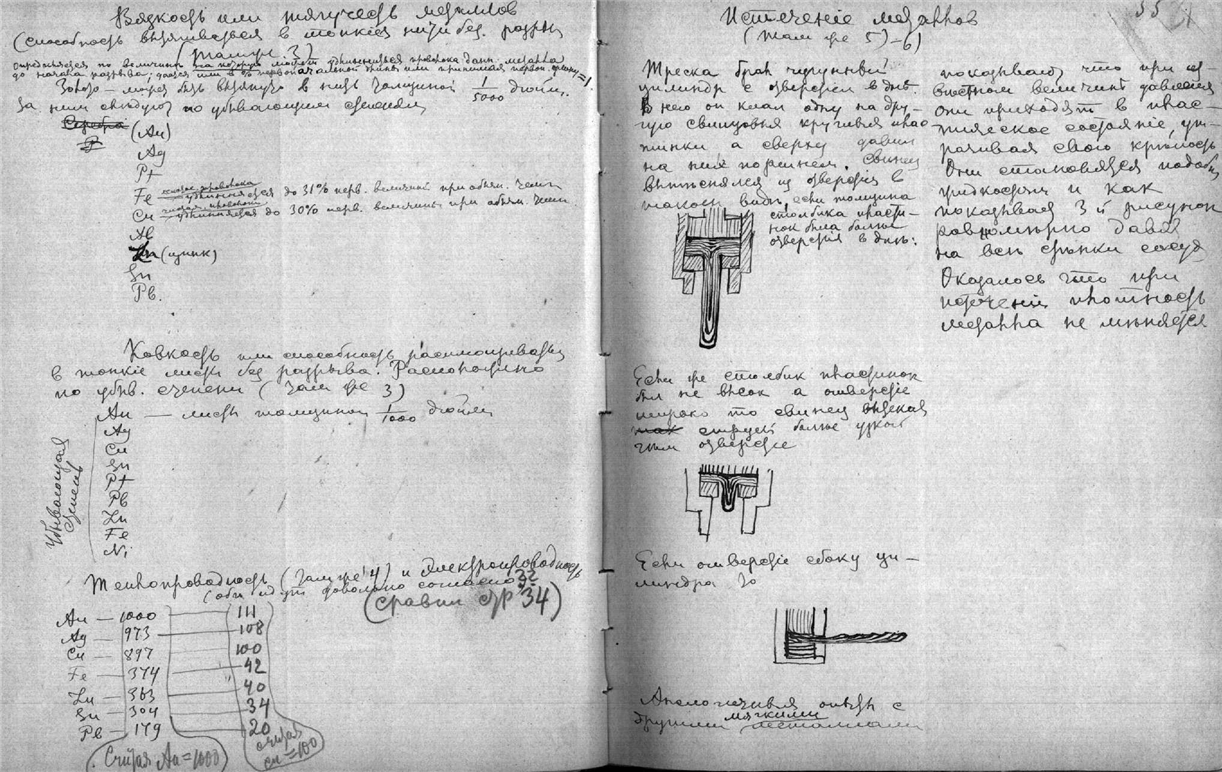 Вязкость или тягучесть металлов
(способность вытягиваться в тонкія нити без разры
(Тамъ же 3)
определяется по величине на которую может удлиняться проволока данн. металла
до начала разрыва; дается или в % первоначальной длины или принимая первон. длину=1.
Золото – может быть вытянуто в нить толщиной 1/5000 дюйм.
За ним следуют по убывающим степеням
Серебро (Au)
Ag
Pt
Fe удлинняется до 31% перв. величины при обыкн. темп.
Cu удлинняется до 30% перв. величины при обыкн. темп.
Al
Zn (цинк)
Sn
Pb.
Ковкость или способность расплющиваться
в тонкие листы без разрыва. Расположено
по убыв. степени (Там же 3)
Au — листы толщиною 1/1000 дюйма
Ag
Cu
Sn
Pt
Pb
Zn
Fe
Ni
Убывающая
степень
Теплопроводность (Там же 4) и Электропроводность
(оба идут довольно согласно
32
(сравни стр 34)
Au — 1000 — 111
Ag — 973 — 108
Cu — 897 — 100
Fe — 374 — 42
Zn — 363 — 40
Sn — 304 — 34
Pb — 179 — 20
Считая Au=1000
считая
Cu=100
Истеченіе металлов
(Там же 5)–6)
55
Треска брал чугунный
цилиндр с отверстіем в дне.
В него он клал одну на дру-
гую свинцовыя круглыя плас-
тинки а сверху давил
на них поршнем. Свинец
вытеснялся из отверстія в
таком виде, если толщина
столбика пласти-
нок была более
отверстія в дне:
Если же столбик пластинок
был не высок а отверстіе
широко то свинец вытекал
так струей более узкой
чем отверстіе
Если отверстіе сбоку ци-
линдра то
Аналогичныя опыты с
другими мягкими металлами
показывают что при из
вестном величине давления
они приходят в плас-
тическое состояніе, ут-
рачивая свою крепость
Они становятся подобн
жидкостям и как
показывая 3й рисунок
равномерно давят
на все стенки сосуд
Оказалось что при
истечении плотность
металла не меняется